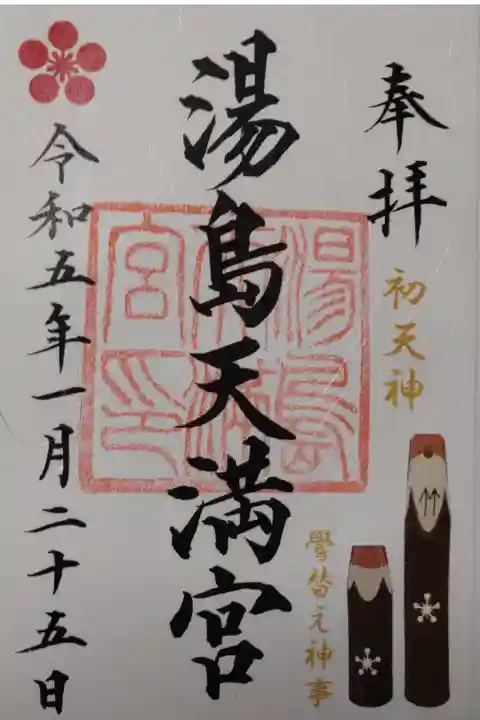 奉拝
初天神
湯島天満宮
湯島天満宮印
鷽替え神事
令和五年一月二十五日